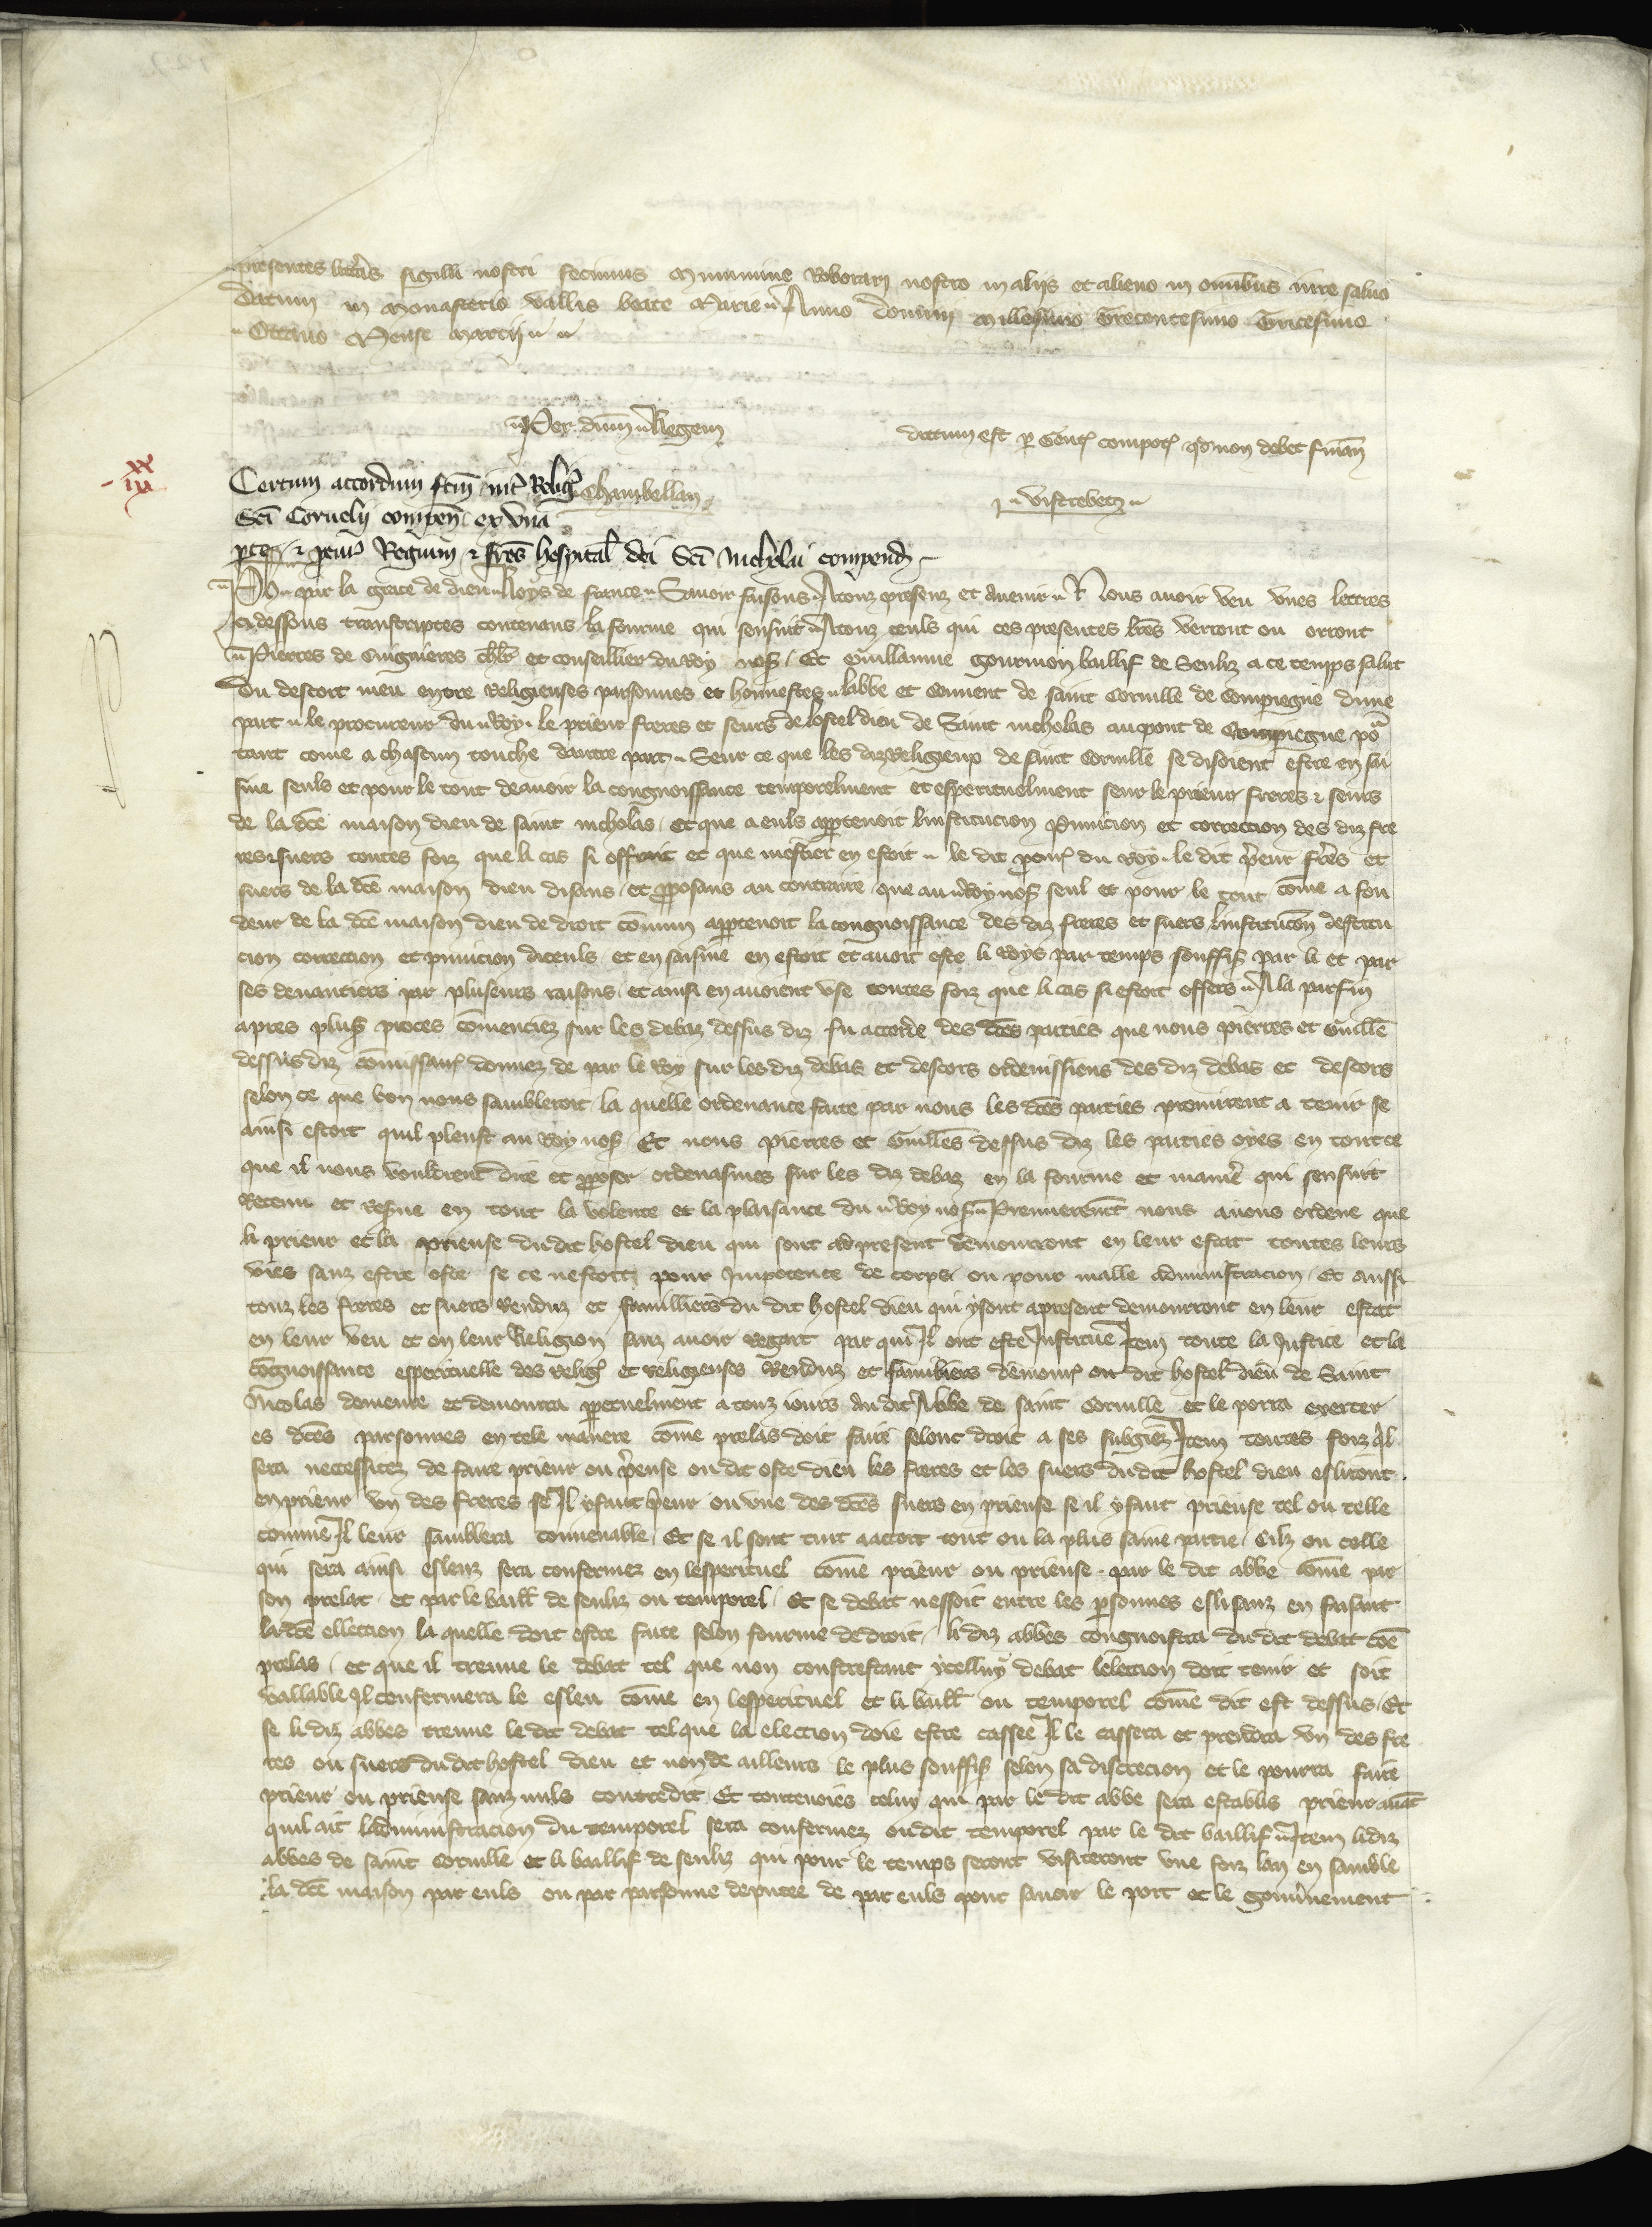 presentes litteris sigilli nostri fecimus munimine Roborari nostro in alijs et alieno in omibus iure saluo
datum in Monasterio vallis beate Marie Anno domini Millesimo Trecentesimo Tricesimo
Octauo Mense Marcij
Per dum Regem
dictum est p Gentes compot qd non debet finan
xx
iiij
Certum accordum fcm int Relig
Chambellan
Visttebetz
Sci Cornelij compen ex vna
pte et pcur Regium et fres hospital dei Sci Nicholai compend
Ph par la grace de dieu Roys de france Sauoir faisons A touz presenz et auenir Nous auoir veu vnes lettres
ci dessous transcriptes contenans la fourme qui sensuit A touz ceuls qui ces presentes lres verront ou orront
Pierres de Cuignieres chlr et conseillier du Roy nos Et Guillaume gourmon baillif de Senliz a ce temps salut
Du descort meu entre Religieuses parsonnes et honnestes labbe et Couuent de saint Cornille de Compiegne dune
part le procureur du Roy le prieur freres et seurs de lostel dieu de Saint nicholas au pont de Compiegne po
tant come a chascun touche dautre part Seur ce que les diz Religieux de saint Cornille se disoient estre en sai
sine seuls et pour le tout de auoir la congnoissance temporelment et esperituelment seur le prieur freres et seurs
de la dce maison dieu de saint nicholas et que a euls apptenoit linstitucion punicion et correction des diz fre
res et suers toutes foiz que li cas si offroit et que mestier en estoit le dit pcur du Roy le dit prieur freres et
suers de la dce maison dieu disans et pposans au contraire que au Roy nos seul et pour le tout come a fon
deur de la dce maison dieu de droit comun apptenoit la congnoissance des diz freres et suers linstitucon destitu
cion correction et punicion diceuls et en saisine en estoit et auoit este li Roys par temps souffis par li et par
ses deuantiers par pluseurs raisons et ainsi en auoient vse toutes foiz que li cas si estoit offers A la parfin
apres plus proces comenciez sur les debaz dessus diz fu accorde des dces parties que nous pierres et Guille
dessus diz comissaires donnez de par le Roy sur les diz debas et descors ordenissiens des diz debas et descors
selon ce que bon nous sambleroit la quelle ordenance faite par nous les dces parties promirent a tenir se
ainsi estoit quil pleust au Roy nos Et nous pierres et Guilles dessus diz les parties oyes en tout ce
que il nous vouldrent dire et pposer ordenasmes sur les diz debaz en la fourme et manie qui sensuit
Retenu et Reserue en tout la volente et la plaisance du Roy nos Premierement nous auons ordene que
li prieur et la prieuse dudit hostel dieu qui sont ad present demourront en leur estat toutes leurs
vies sanz estre oste se ce nestoit pour Impotence de corps ou pour malle administracion Et aussi
touz les freres et suers Renduz et familliers du dit hostel dieu qui y sont apresent demourront en leur estat
en leur veu et en leur Religion sanz auoir regart par qui Il ont este Institue Item toute la Justice et la
cognoissance esperituelle des relig et religieuses Renduz et familiers demour ou dit hostel dieu de Saint
Nicolas demeure et demourra ppetuelment a touz iours au dit Abbe de saint Cornille et le porra exercer
es dces parsonnes en tele maniere come prelas doit faire selonc droit a ses subgiez Item toutes foiz quil
sera necessitez de faire prieur ou prieuse ou dit oste dieu les freres et les suers du dit hostel dieu esliront
en prieur vn des freres se Il y faut prieur ou vne des dces suers en prieuse se il y faut prieuse tel ou telle
comme Il leur samblera conuenable Et se il sont tuit a acort tout ou la plus saine partie Cilz ou celle
qui sera ainsi esleuz sera confermez en lesperituel come prieur ou prieuse par le dit abbe come par
son prelat et par le baill de senliz ou temporel Et se debat nessoit entre les personnes eslisanz en faisant
la dce ellection la quelle doit estre faite selon fourme de droit li diz abbes congnoistra du dit debat coe
prelas et que il treuue le debat tel que non contrestant ycelluy debat lelection doit tenir et soit
vallable Il confermera le esleu come en lesperituel et li baill ou temporel come dit est dessus Et
se li diz abbes treuue le dit debat tel que la election doie estre cassee Il le cassera et prendra vn des fre
res ou suers du dit hostel dieu et non de ailleurs le plus souffis selon sa discrecion et le pourra faire
prieur ou prieuse sanz nuls contredit Et toutenoies celuy qui par le dit abbe sera establis prieur auat
quil ait ladministracion du temporel sera confermez ou dit temporel par le dit baillif Item li diz
abbes de saint Cornille et li baillif de senliz qui pour le temps seront visiteront vne foiz lan en samble
la dce maison par euls ou par parsonne deputee de par euls pour sauoir le port et le gouuernement